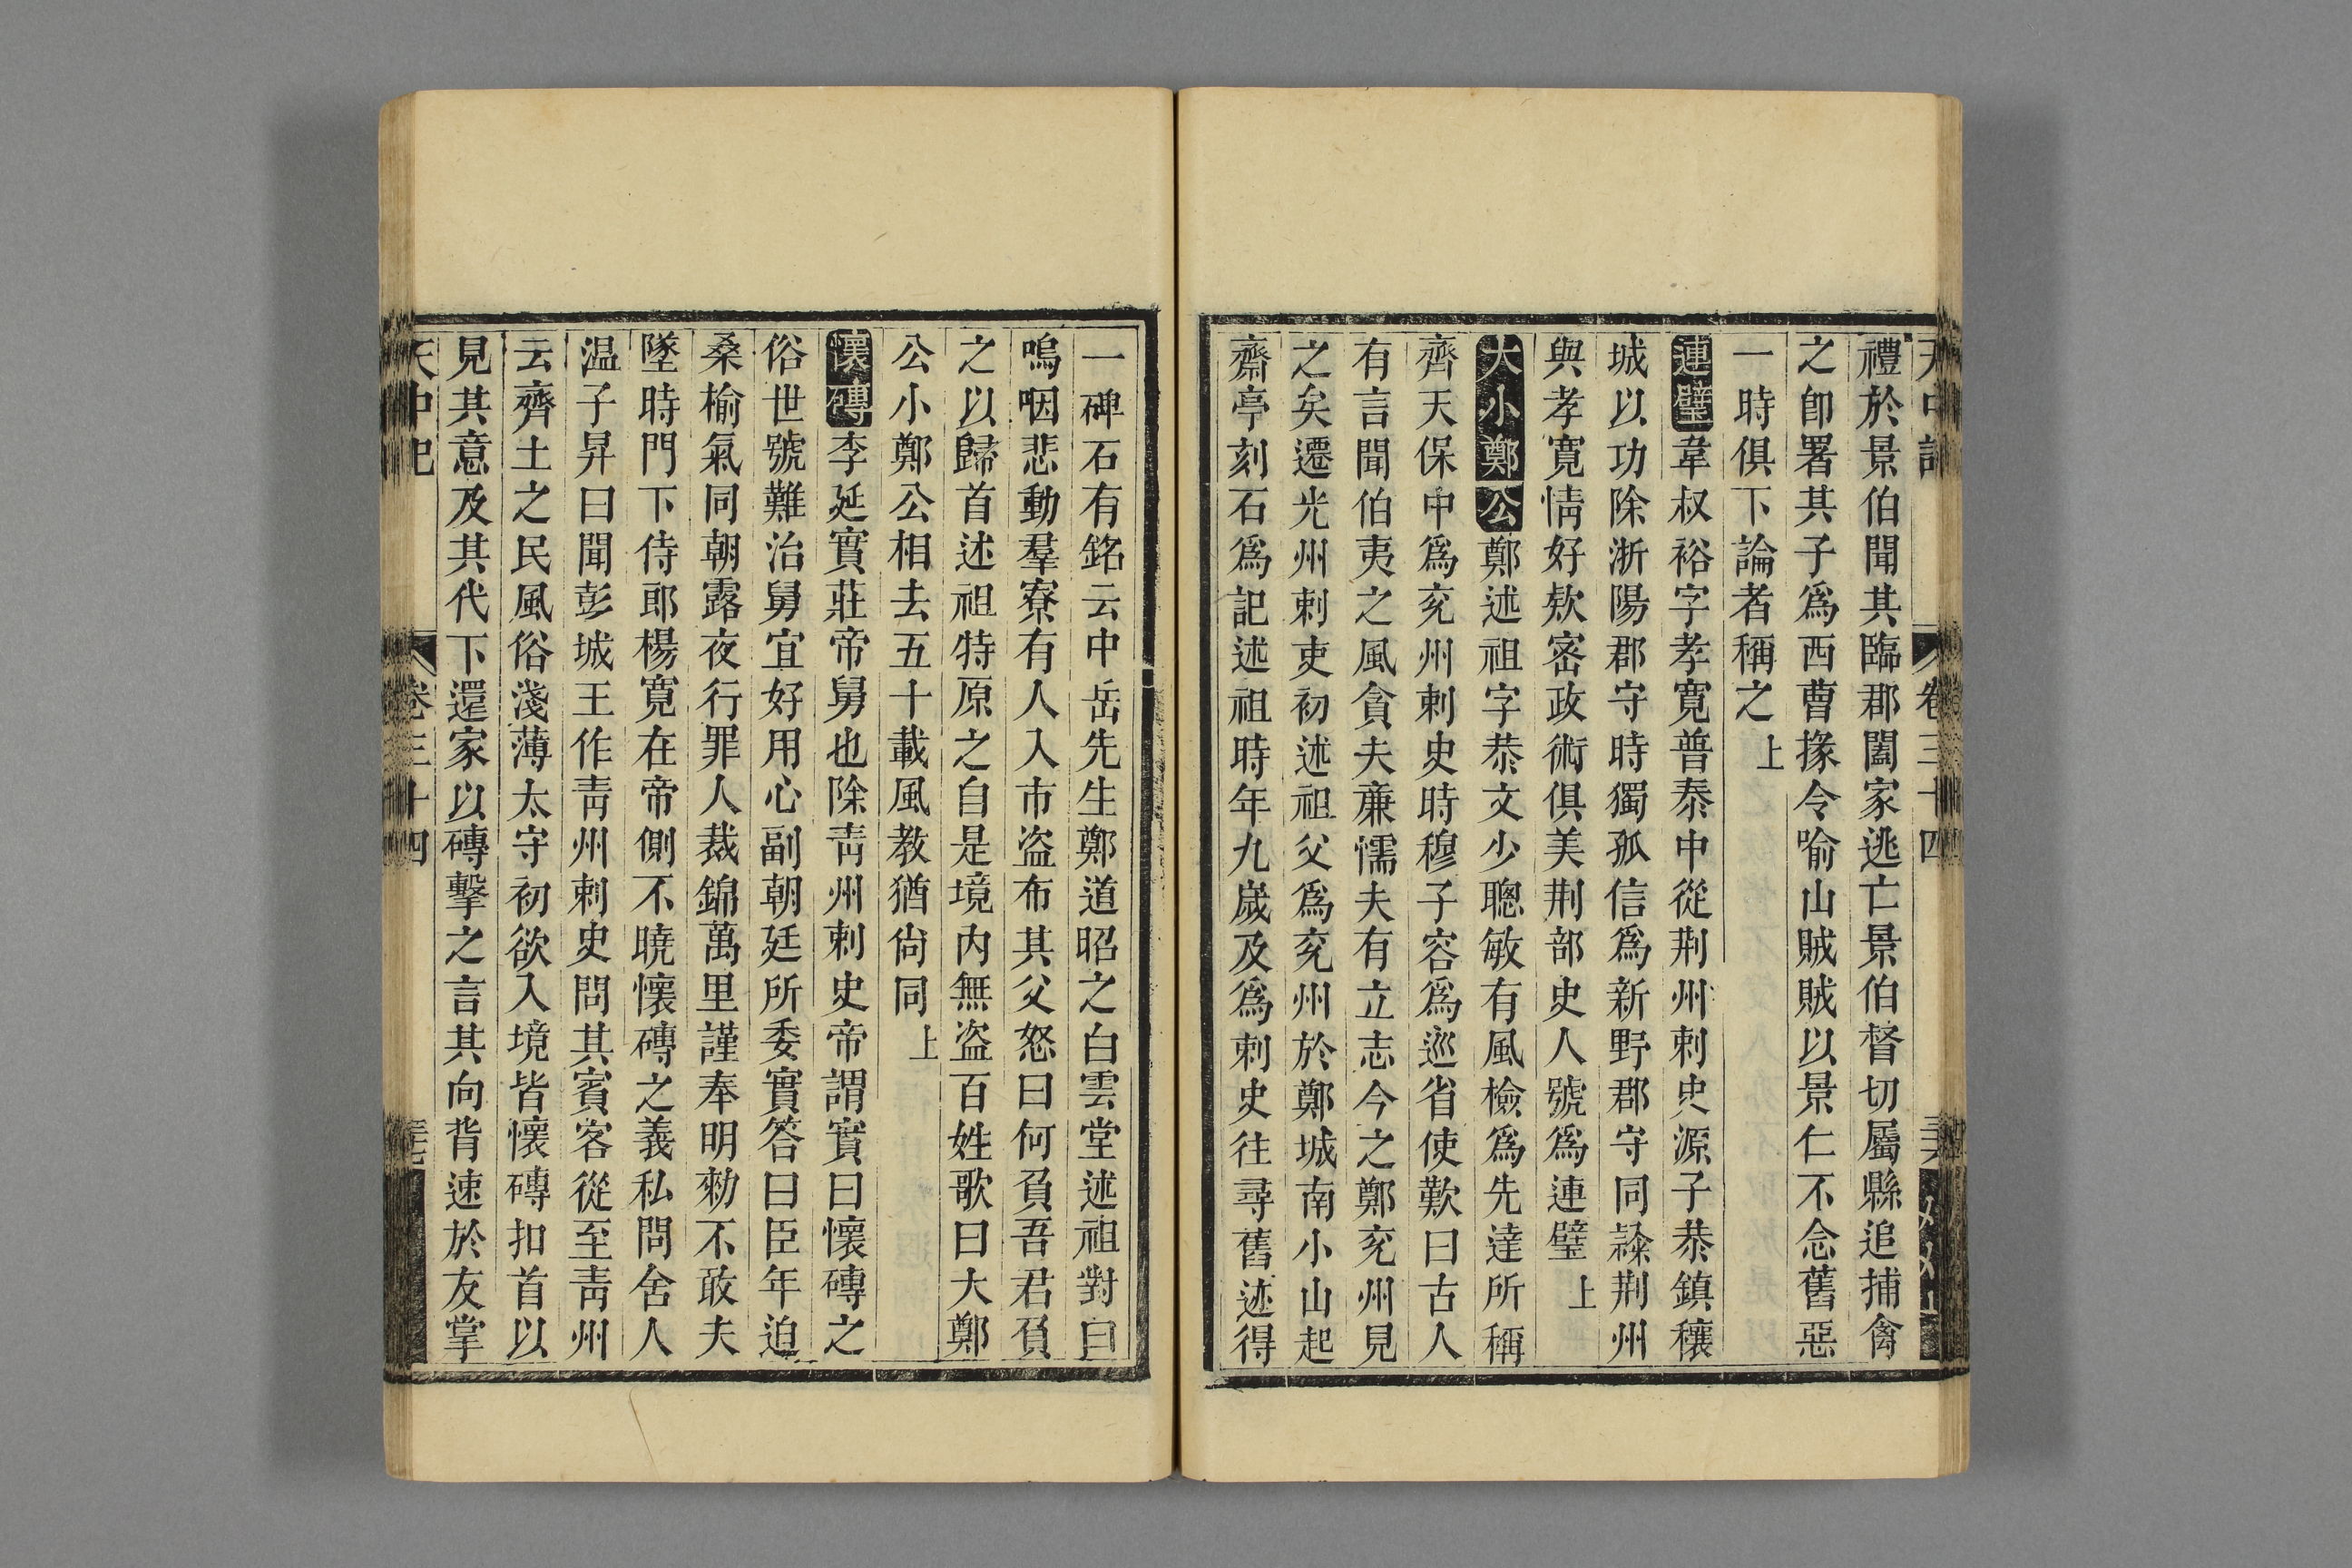 禮於景伯聞其臨郡闔家逃亡景伯督切屬縣追捕禽
之卽署其子爲西曹掾令喻山賊賊以景仁不念舊惡
一時俱下論者稱之上
連璧韋叔裕字孝寬普泰中從荆州刺史源子恭鎮穰
城以功除淅陽郡守時獨孤信爲新野郡守同隸荆州
與孝寬情好欵密政術俱美荆部史人號爲連璧上
大小鄭公鄭述祖字恭文少聰敏有風檢爲先達所稱
齊天保中爲兖州刺史時穆子容爲巡省使歎曰古人
有言聞伯夷之風貪夫亷懦夫有立志今之鄭兖州見
之矣遷光州刺吏初述祖父爲兖州於鄭城南小山起
齋亭刻石爲記述祖時年九歲及爲刺史往尋舊迹得
一碑石有銘云中岳先生鄭道昭之白雲堂述祖對白
嗚咽悲動羣寮有人入市盜布其父怒曰何負吾君負
之以歸首述祖特原之自是境内無盜百姓歌曰大鄭
公小鄭公相去五十載風教猶尙同上
懷磚李延實莊帝舅也除靑州刺史帝謂實曰懷磚之
俗世號難治舅宜好用心副朝廷所委實答曰臣年迫
桑榆氣同朝露夜行罪人裁錦萬里謹奉明勑不敢失
墜時門下侍郎楊寛在帝側不曉懷磚之義私問舍人
温子昇曰聞彭城王作靑州刺史問其賓客從至靑州
云齊土之民風俗淺薄太守初欲入境皆懷磚扣首以
見其意及其代下還家以磚擊之言其向背速於反掌
天中記 卷三十四